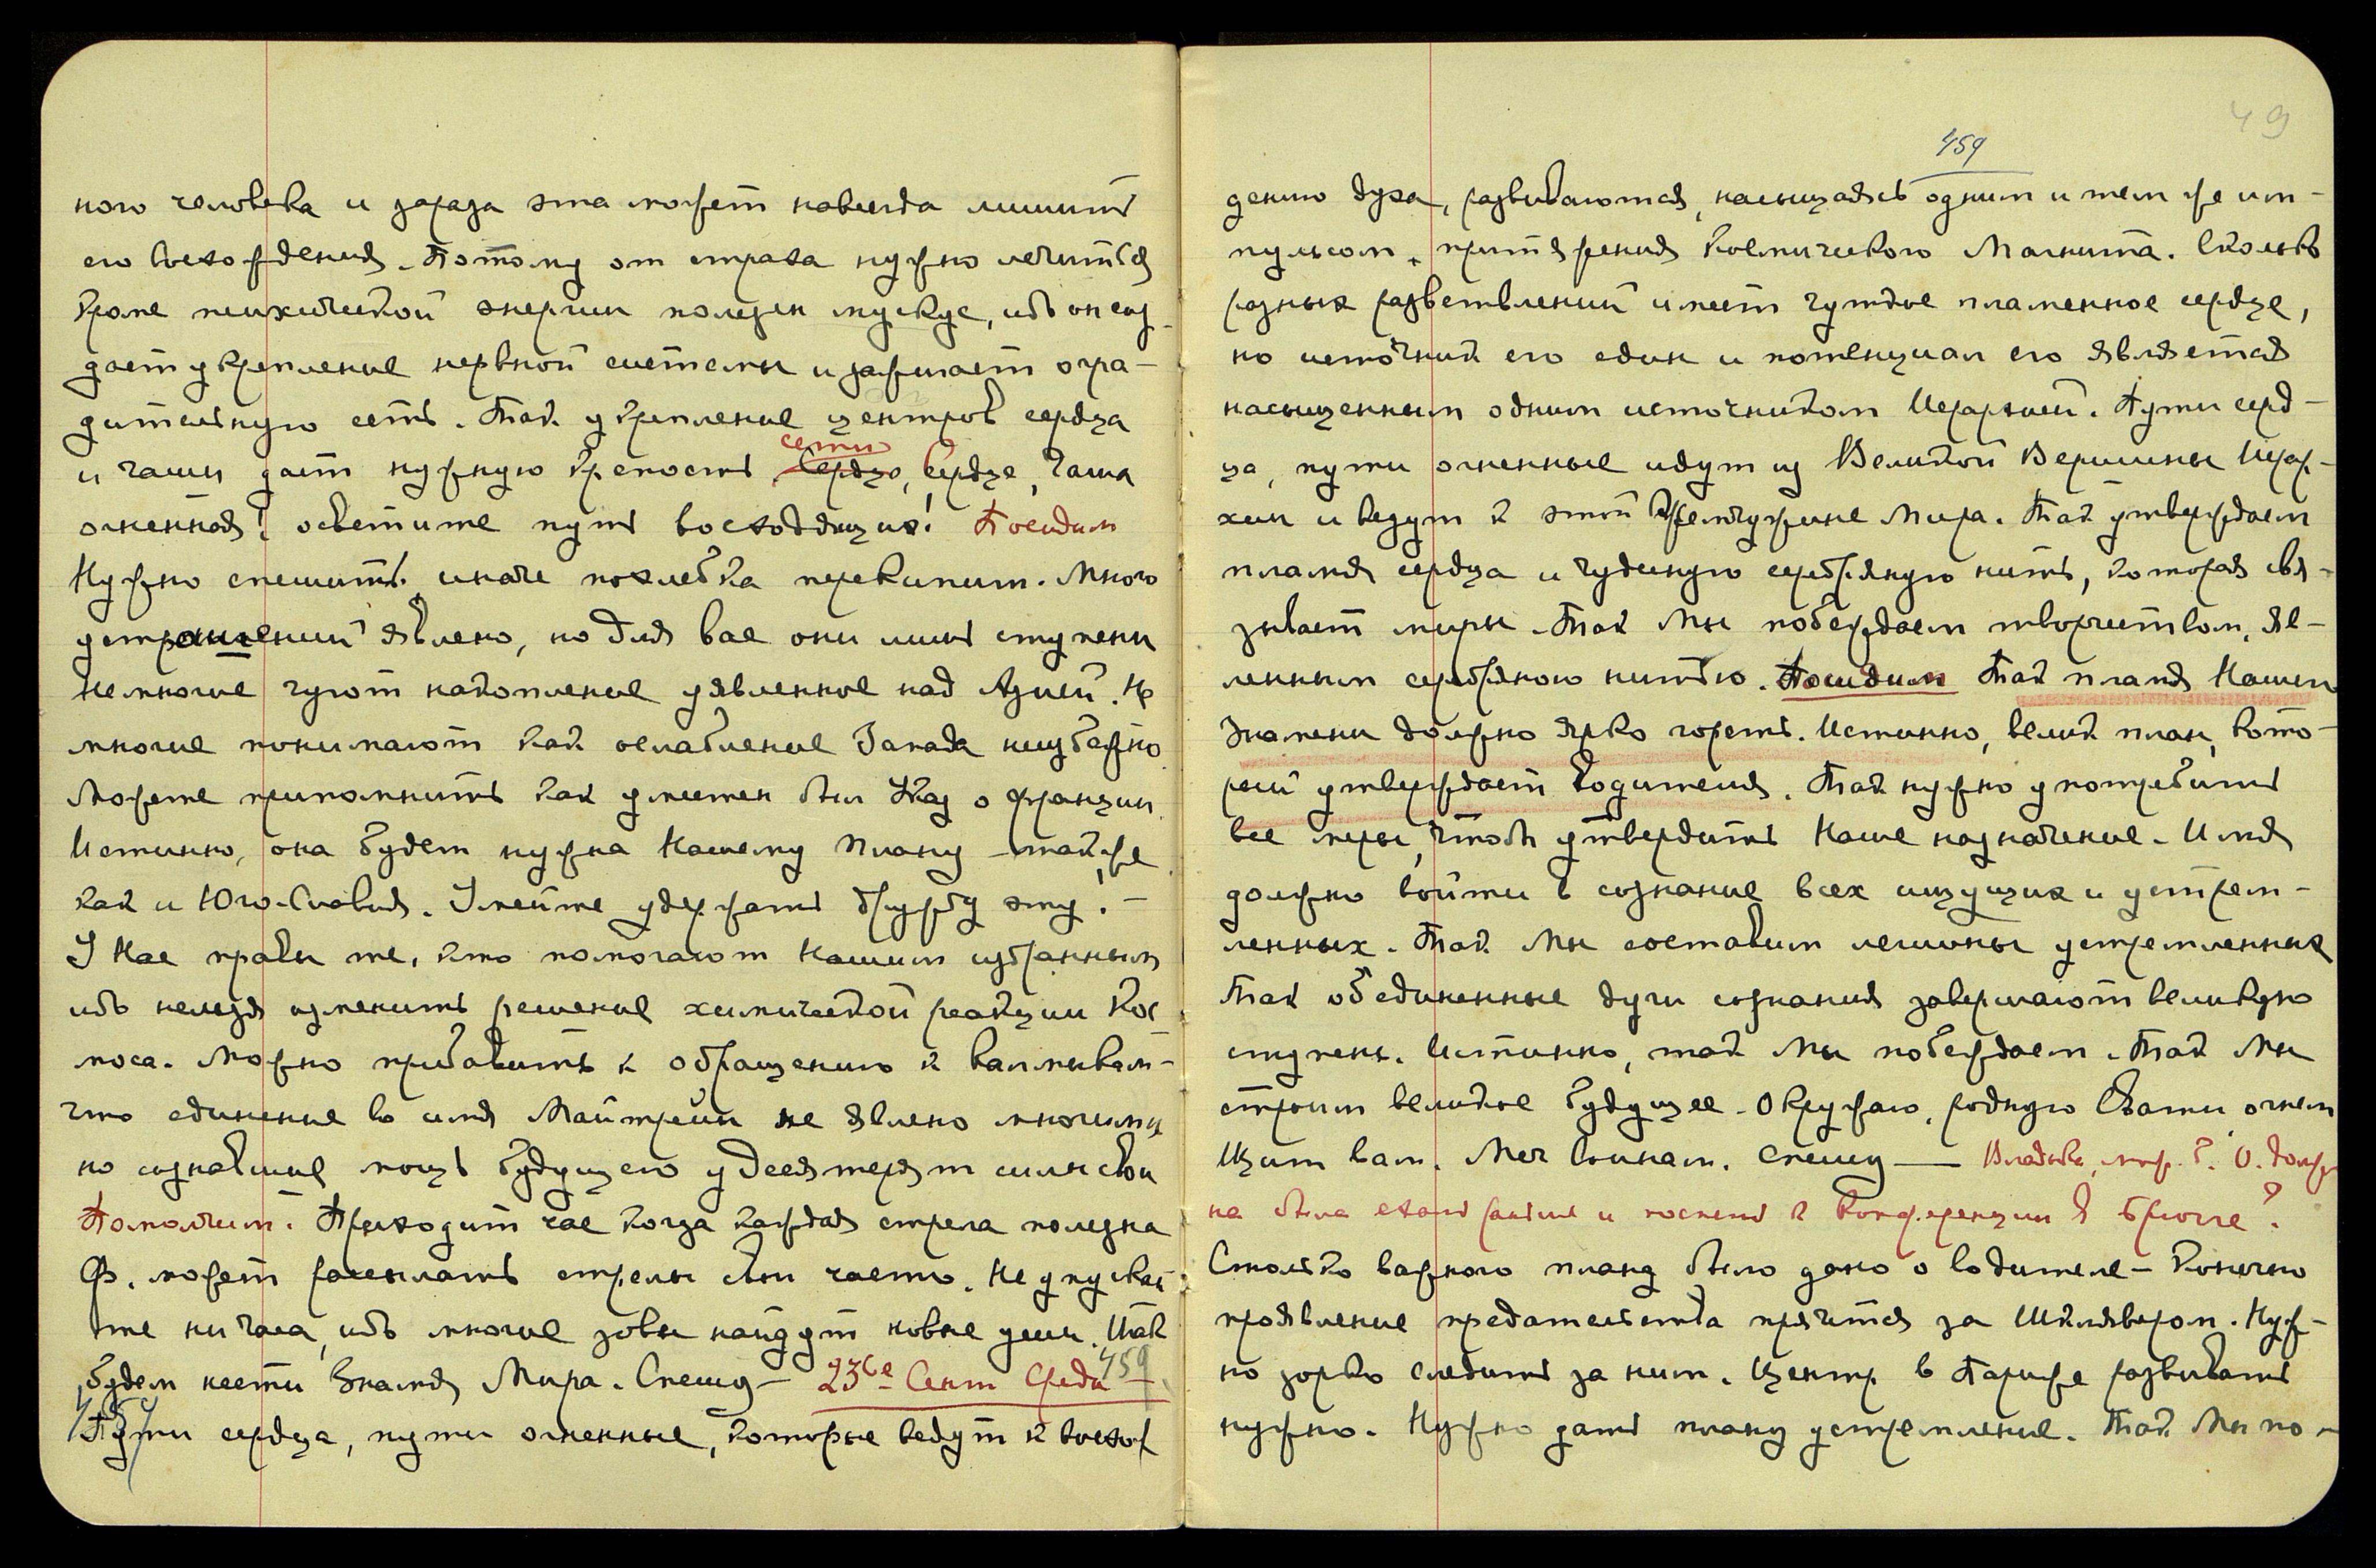 ного человека и зараза эта может навсегда лишить
его восхождения. Потому от страха нужно лечиться
кроме психической энергии полезен мускус, ибо он соз-
дает укрепление нервной системы и зажигает огра-
дительную сеть. Так укрепление центров сердца
и чаши дает нужную крепость сердцо, сети Сердце, Чаша
огненная! осветите путь восходящих! Посидим
Нужно спешить, иначе похлебка перекипит. Много
устрашений явлено, но для вас они лишь ступени
Немногие чуют накопление уявленное над Азией. Не
многие понимают как ослабление Запада неизбежно
Можете припомнить как уместен был Указ о Франции
Истинно, она будет нужна Нашему Плану также,
как и Юго-Славия. Умейте удержать дружбу эту! –
У Нас правы те, кто помогают Нашим избранным
ибо нельзя изменить решение химической реакции Кос
моса. Можно прибавить к обращению к
что единение во имя Майтрейи не явлено многими
но сознавшие мощь будущего удесятерят силы свои
Помолчим. Приходит час когда каждая стрела полезна
Ф. может рассылать стрелы эти часто. Не упускай-
те ни часа, ибо многие зовы найдут новые уши. Так
будем нести Знамя Мира. Спешу – 23ье Сент Среда
459
Пути сердца, пути огненные, которые ведут к восхож
49
459
дению духа, развиваются, насыщаясь одним и тем же им-
пульсом, притяжения космического Магнита. Сколько
разных разветвлений имеет чуткое пламенное сердце,
но источник его един и потенциал его является
насыщенным одним источником Иерархией. Пути серд-
ца, пути огненные идут из Великой Вершины Иерар-
хии и ведут к этой Жемчужине Мира. Так утверждаем
пламя сердца и чудесную серебряную нить, которая свя-
зывает миры. Так Мы побеждаем творчеством, яв-
ленным серебряною нитью. Посидим Так пламя Нашего
Знамени должно ярко гореть. Истинно, велик план, кото-
рый утверждает Водителя. Так нужно употребить
все меры, чтобы утвердить Наше назначение. Имя
должно войти в сознание всех ищущих и устрем-
ленных. Так Мы составим легионы устремленных
Так объединенные дуги сознания завершают великую
ступень. Истинно, так Мы побеждаем. Так Мы
строим великое будущее. Окружаю, родную Свати огнем
Щит вам. Меч Воинам. Спешу — Владыка, м-р. б. О. долж
на была ехать раньше и поспеть к конференции в Брюгге?
Столько важного плану было дано о водителе – Конечно
проявление предательства прячется за Шклявером. Нуж-
но зорко следить за ним. Центр в Париже развивать
нужно. Нужно дать плану устремление. Так Мы по-